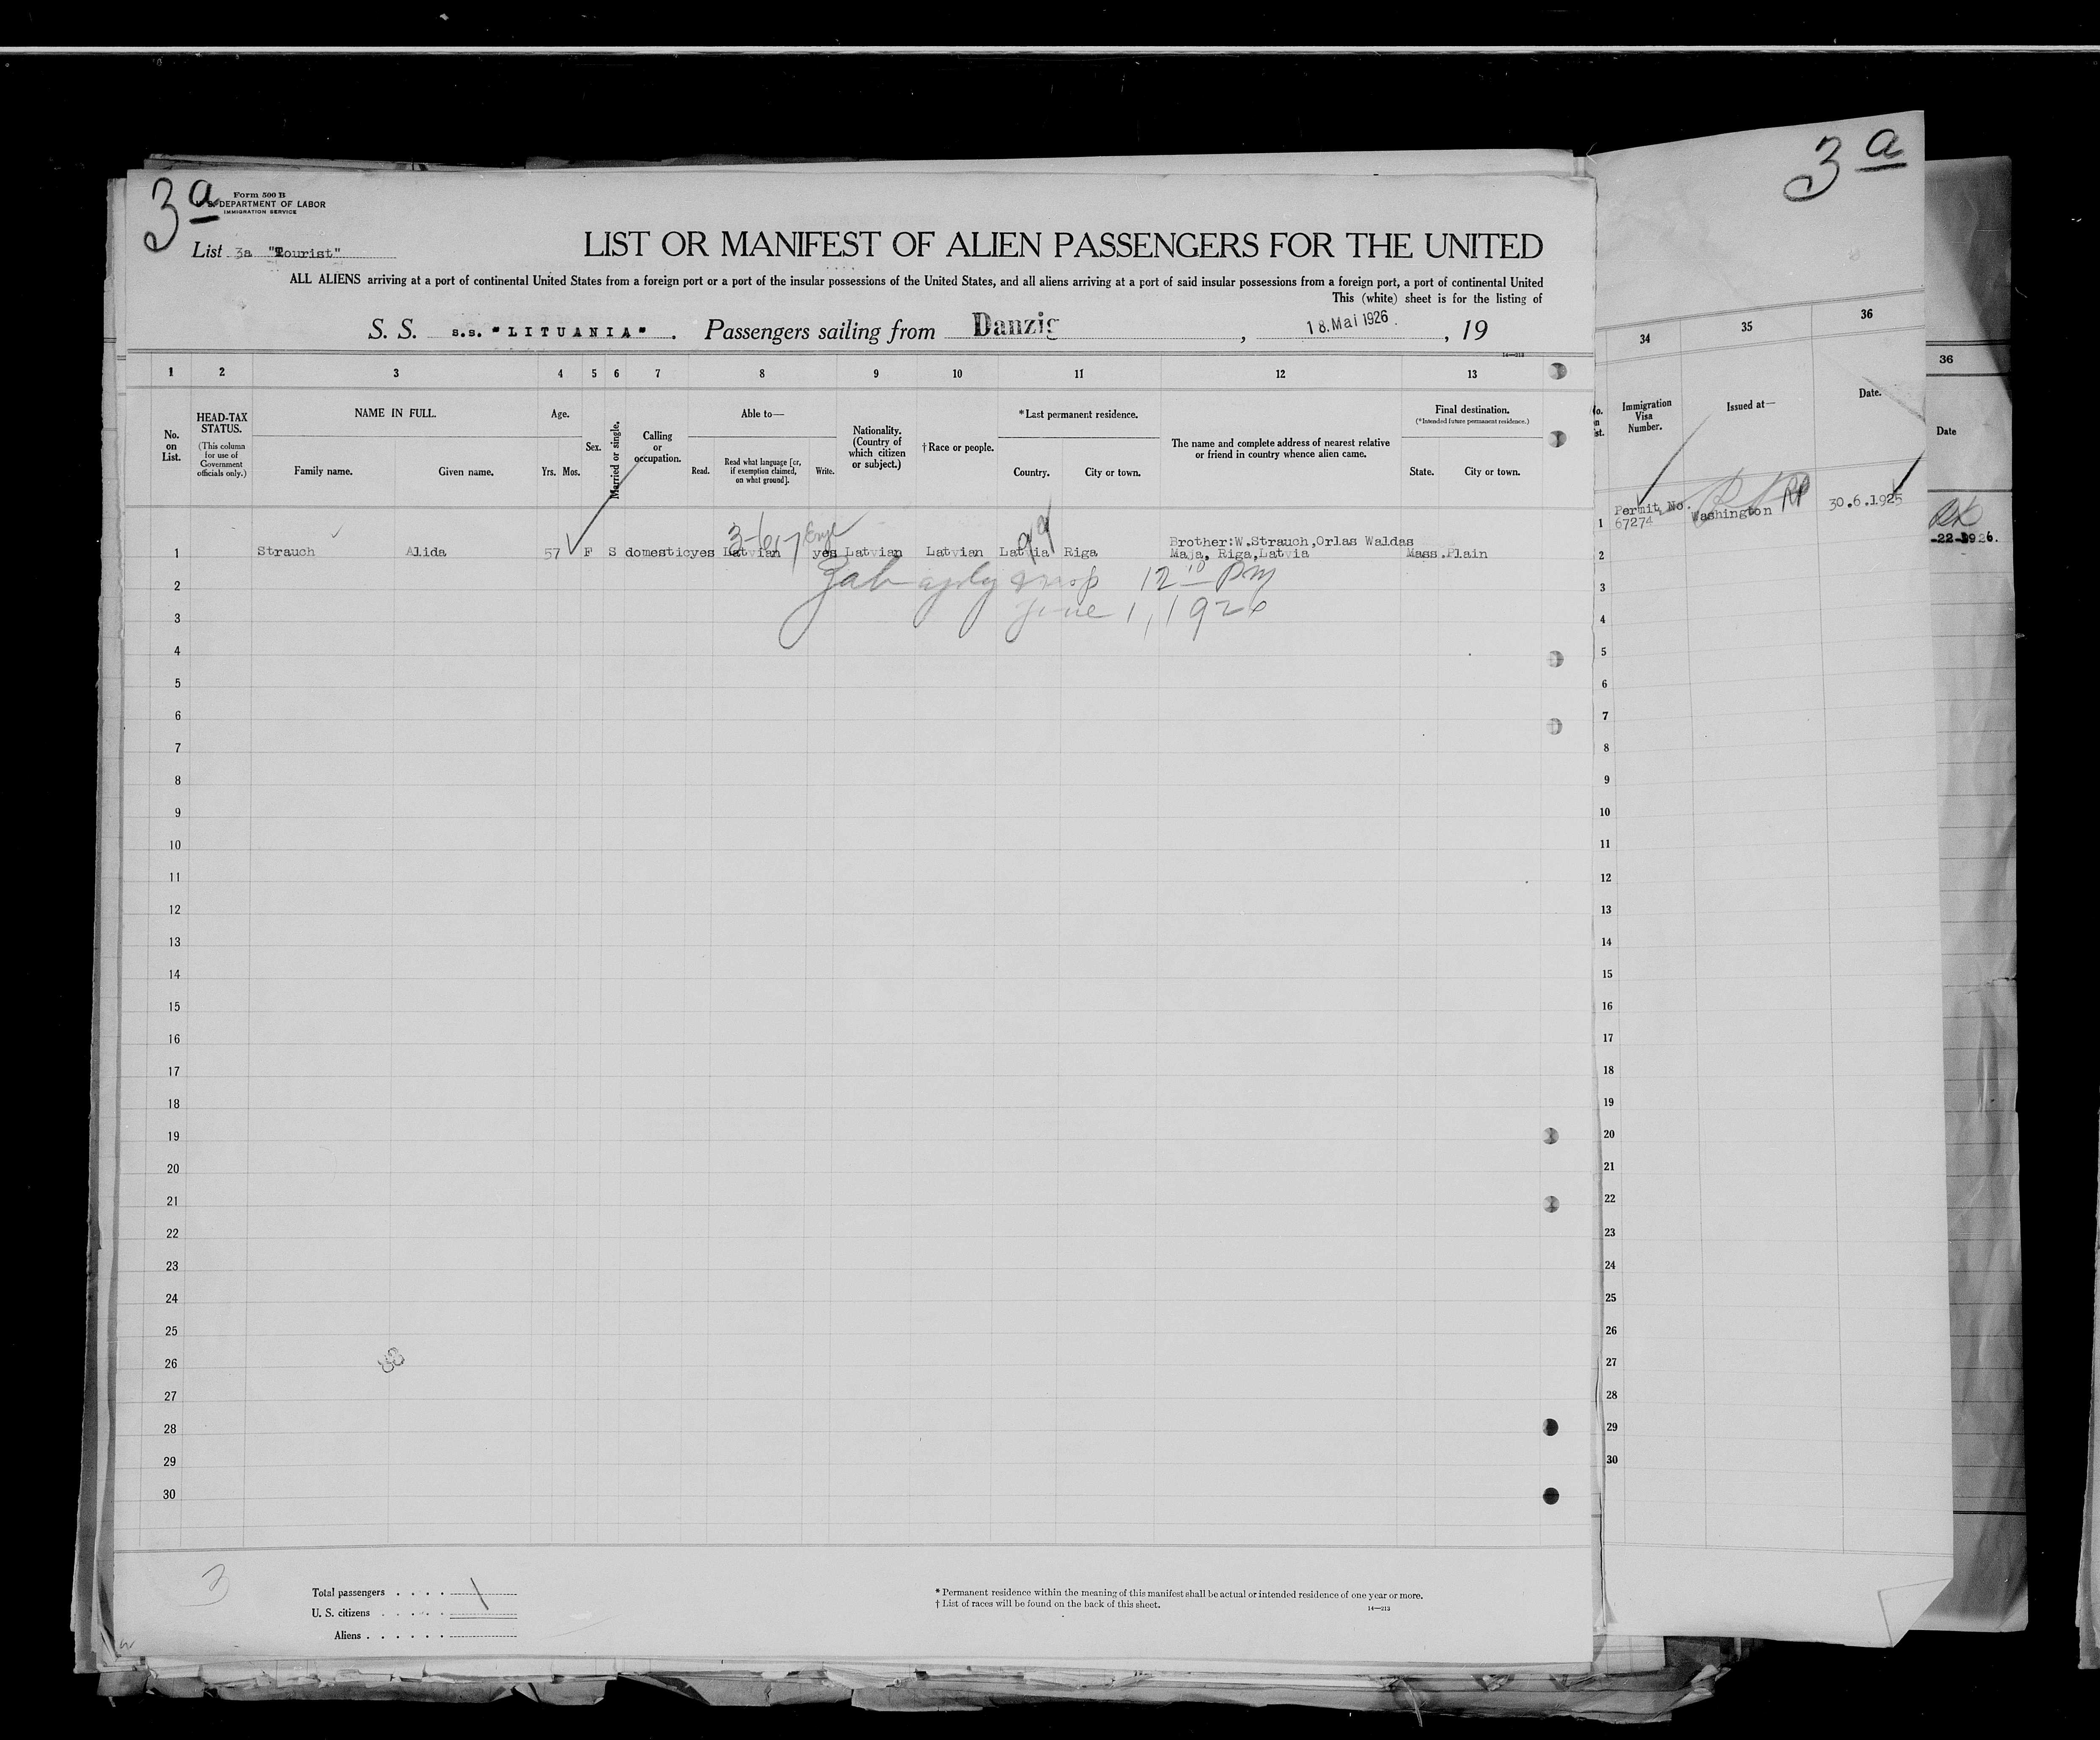 3a
Form 500 B
DEPARTMENT OF LABOR
IMMIGRATION SERVICE
List 3a "Tourist"
LIST OR MANIFEST OF ALIEN PASSENGERS FOR THE UNITED
ALL ALIENS arriving at a port of continental United States from a foreign port or a port of the insular possessions of the United States, and all aliens arriving at a port of said insular possessions from a foreign port, a port of continental United
This (white) sheet is for the listing of
S. S. s.s. "LITUANIA". Passengers sailing from Danzig, 18. Mai 1926., 19
14—213
1 2 3 4 5 6 7 8 9 10 11 12 13
No. on List.
HEAD-TAX STATUS.
(This column for use of Government officials only.)
NAME IN FULL.
Family name. Given name.
Age.
Yrs. Mos.
Sex.
Married or single.
Calling or occupation.
Able to—
Read. Read what language [or, if exemption claimed, on what ground]. Write.
Nationality. (Country of which citizen or subject.)
† Race or people.
* Last permanent residence.
Country. City or town.
The name and complete address of nearest relative or friend in country whence alien came.
Final destination.
(* Intended future permanent residence.)
State. City or town.
3-617 Engl
1 Strauch Alida 57 F S domestic yes Latvian yes Latvian Latvian Latvia Riga Brother:W.Strauch,Orlas Waldas Maja, Riga,Latvia Mass. Plain
2 12 10 PM
3 June 1, 1926
4
5
6
7
8
9
10
11
12
13
14
15
16
17
18
19
20
21
22
23
24
25
26
27
28
29
30
3
Total passengers . . . . 1
U. S. citizens . . . . .
Aliens . . . . . .
* Permanent residence within the meaning of this manifest shall be actual or intended residence of one year or more.
† List of races will be found on the back of this sheet.
14—213
3a
34 35 36
Immigration Visa Number.
Issued at—
Date.
1 Permit No. 67274 Washington 30.6.1925
2
3
4
5
6
7
8
9
10
11
12
13
14
15
16
17
18
19
20
21
22
23
24
25
26
27
28
29
30
36
Date
-22-1926.